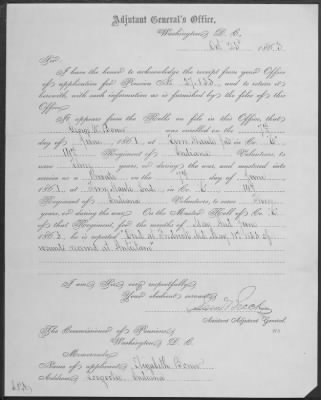 Adjutant General's Office,
Washington, D. C.
Oct 23d 1863
Sir:
I have the honor to acknowledge the receipt from your Office
of application for Pension No. 27,133, and to return it
herewith, with such information as is furnished by the files of this
Office.
It appears from the Rolls on file in this Office, that
George W. was enrolled on the 7th
day of June 1861, at Terre Haute Ind in Co. E,
14th Regiment of Indiana Volunteers, to
serve three years, or during the war, and mustered into
service as a Private on the 7th day of June
1861, at Terre Haute Ind. in Co. E, 14th
Regiment of Indiana Volunteers, to serve three
years, or during the war. On the Muster Roll of Co. E,
of that Regiment, for the months of May and June
1863, he is reported "Died at
wounds received at Antietam"
I am, Sir, very respectfully,
Your obedient servant,
Assistant Adjutant General.
The Commissioner of Pensions,
Washington, D. C.
Memoranda:
Name of applicant, Elizabeth
Address, Indiana